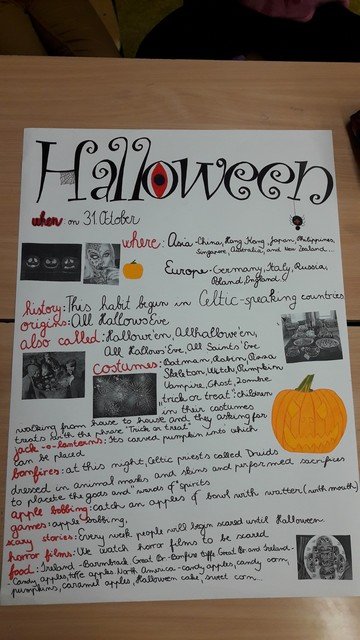 Halloween
when: on 31 October
where: Asia-China, Hong Kong, Japan, Philippines,
Singapore, Australia, and New Zealand...
Europe-Germany, Italy, Russia,
Poland, England
history: This habit begin in Celtic-speaking countries
origins: All Hallows Eve
also called: Hallowe'en, Allhallowe'en,
All Hallows' Eve, All Saints' Eve
costumes: Batman, Robin,
Skeleton, Witch, Pumpkin
Vampire, Ghost, Zombie
"trick or treat": children
in their costumes
walking from house to house and they asking for
treats with the phrase "Trick or treat"
jack-o-lanterns: Its carved pumpkin into which
can be placed
bonfires: at this night, Celtic priests called Druids
dressed in animal masks and skins and performed sacrifices
to placate the gods and spirits
apple bobbing: catch an apples of bowl with watter (with mouth)
games: apple bobbing,
scary stories: Every week people will begin scared until Halloween.
horror films: We watch horror films to be scared
food: Ireland -Barmbrack Great Br-Bonfire toffe Great Br and Ireland-
-Candy apples, toffe apples. North America-candy apples, candy corn,
pumpkins, caramel apples, Halloween cake, sweet corn...